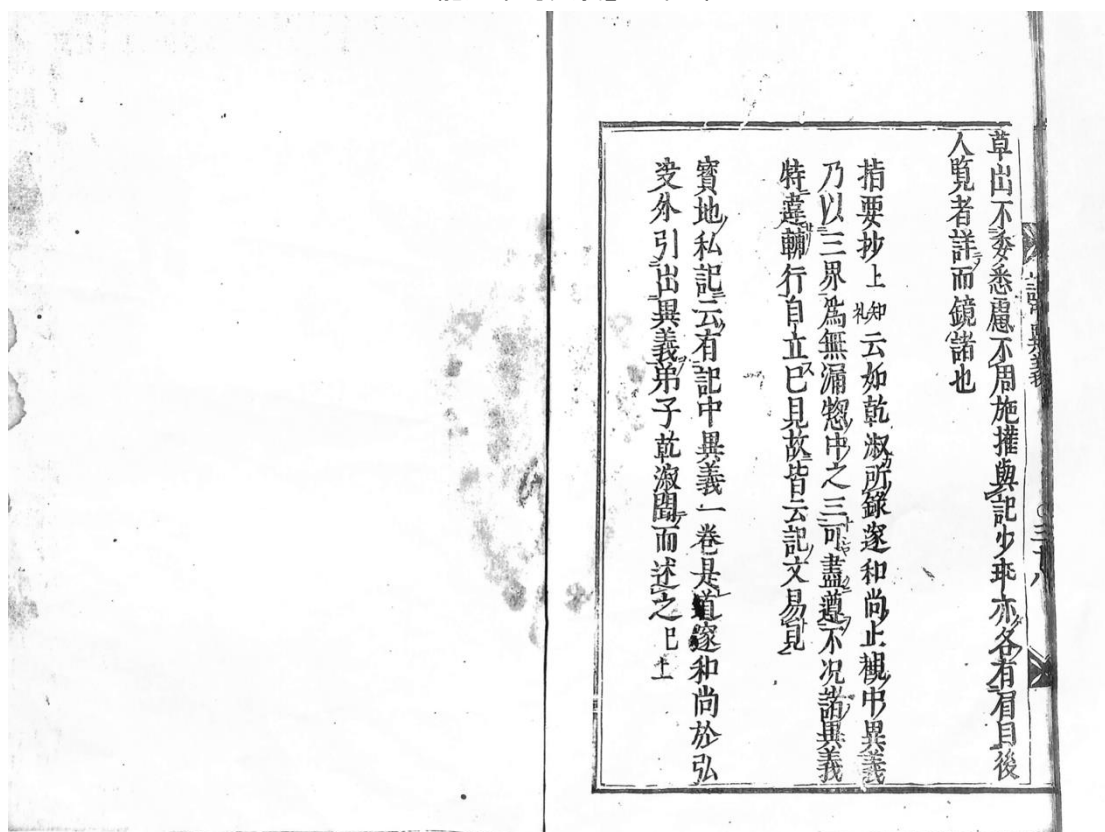 草出不委悉慮不周施權輿記少班亦各有眉目後
人覧者詳而鏡諸也
指要抄上知礼云如乾淑所錄邃和尚止觀中異義
乃以三界為無漏惣中之三可盡遵不况諸異義
特違輔行自立已見故皆云記文易見
寳地私記云有記中異義一卷是道邃和尚於弘
决外引出異義弟子乾淑聞而述之已上
記中異義
三十八